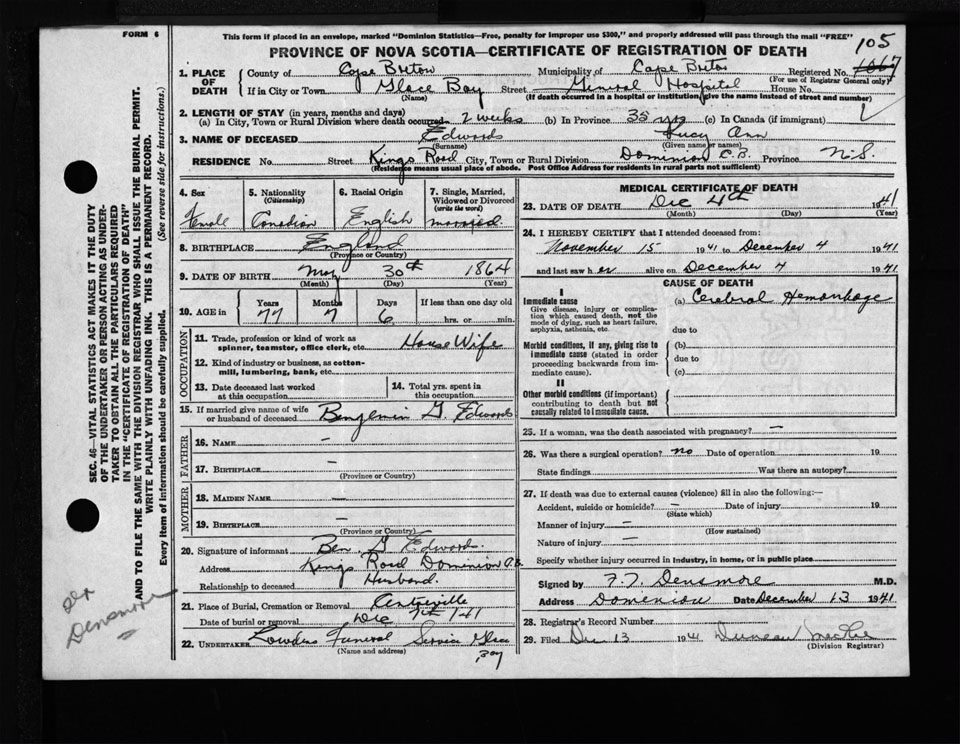 FORM 6
This form if placed in an envelope, marked "Dominion Statistics—Free, penalty for improper use $300," and properly addressed will pass through the mail "FREE"
PROVINCE OF NOVA SCOTIA—CERTIFICATE OF REGISTRATION OF DEATH
105
1. PLACE OF DEATH County of Cape Breton Municipality of Cape Breton Registered No.
(For use of Registrar General only)
If in City or Town Glace Bay Street General Hospital House No.
(Name) (If death occurred in a hospital or institution, give the name instead of street and number)
2. LENGTH OF STAY (in years, months and days)
(a) In City, Town or Rural Division where death occurred 2 weeks (b) In Province 35 yrs (c) In Canada (if immigrant)
3. NAME OF DECEASED Edwards Lucy Ann
(Surname) (Given name or names)
RESIDENCE No. Street Kings Road City, Town or Rural Division Dominion C.B. Province N.S.
(Residence means usual place of abode. Post Office Address for residents in rural parts not sufficient)
4. Sex Female
5. Nationality (Citizenship) Canadian
6. Racial Origin English
7. Single, Married, Widowed or Divorced (write the word) married
8. BIRTHPLACE England
(Province or Country)
9. DATE OF BIRTH May 30th 1864
(Month) (Day) (Year)
10. AGE in Years 77 Months 7 Days 6 If less than one day old hrs. or min.
OCCUPATION
11. Trade, profession or kind of work as spinner, teamster, office clerk, etc. House Wife
12. Kind of industry or business, as cotton-mill, lumbering, bank, etc.
13. Date deceased last worked at this occupation
14. Total yrs. spent in this occupation
15. If married give name of wife or husband of deceased Benjemin G. Edwards
FATHER
16. NAME –
17. BIRTHPLACE –
(Province or Country)
MOTHER
18. MAIDEN NAME –
19. BIRTHPLACE –
(Province or Country)
20. Signature of informant Ben. G. Edwards.
Address Kings Road Dominion C.B.
Relationship to deceased Husband.
21. Place of Burial, Cremation or Removal
Date of burial or removal Dec 7th /41
22. UNDERTAKER Funeral Service Glace Bay
(Name and address)
MEDICAL CERTIFICATE OF DEATH
23. DATE OF DEATH Dec 4th 1941
(Month) (Day) (Year)
24. I HEREBY CERTIFY that I attended deceased from:
November 15 1941 to December 4 1941
and last saw her alive on December 4 1941
CAUSE OF DEATH
I
Immediate cause (a) Cerebral Hemorrhage
Give disease, injury or complication which caused death, not the mode of dying, such as heart failure, asphyxia, asthenia, etc.
due to
Morbid conditions, if any, giving rise to immediate cause (stated in order proceeding backwards from immediate cause).
(b)
due to
(c)
II
Other morbid conditions (if important) contributing to death but not causally related to immediate cause.
25. If a woman, was the death associated with pregnancy? –
26. Was there a surgical operation? no Date of operation 19
State findings Was there an autopsy?
27. If death was due to external causes (violence) fill in also the following:—
Accident, suicide or homicide? – Date of injury 19
(State which)
Manner of injury –
(How sustained)
Nature of injury –
Specify whether injury occurred in industry, in home, or in public place
Signed by F.T. Densmore M.D.
Address Dominion Date December 13 1941
28. Registrar's Record Number
29. Filed Dec 13 1941 Duncan
(Division Registrar)
SEC. 46—VITAL STATISTICS ACT MAKES IT THE DUTY
OF THE UNDERTAKER OR PERSON ACTING AS UNDER-
TAKER TO OBTAIN ALL THE PARTICULARS REQUIRED
IN THE "CERTIFICATE OF REGISTRATION OF DEATH"
AND TO FILE THE SAME WITH THE DIVISION REGISTRAR WHO SHALL ISSUE THE BURIAL PERMIT.
WRITE PLAINLY WITH UNFADING INK. THIS IS A PERMANENT RECORD.
Every item of information should be carefully supplied. (See reverse side for instructions.)
Dr
Densmore